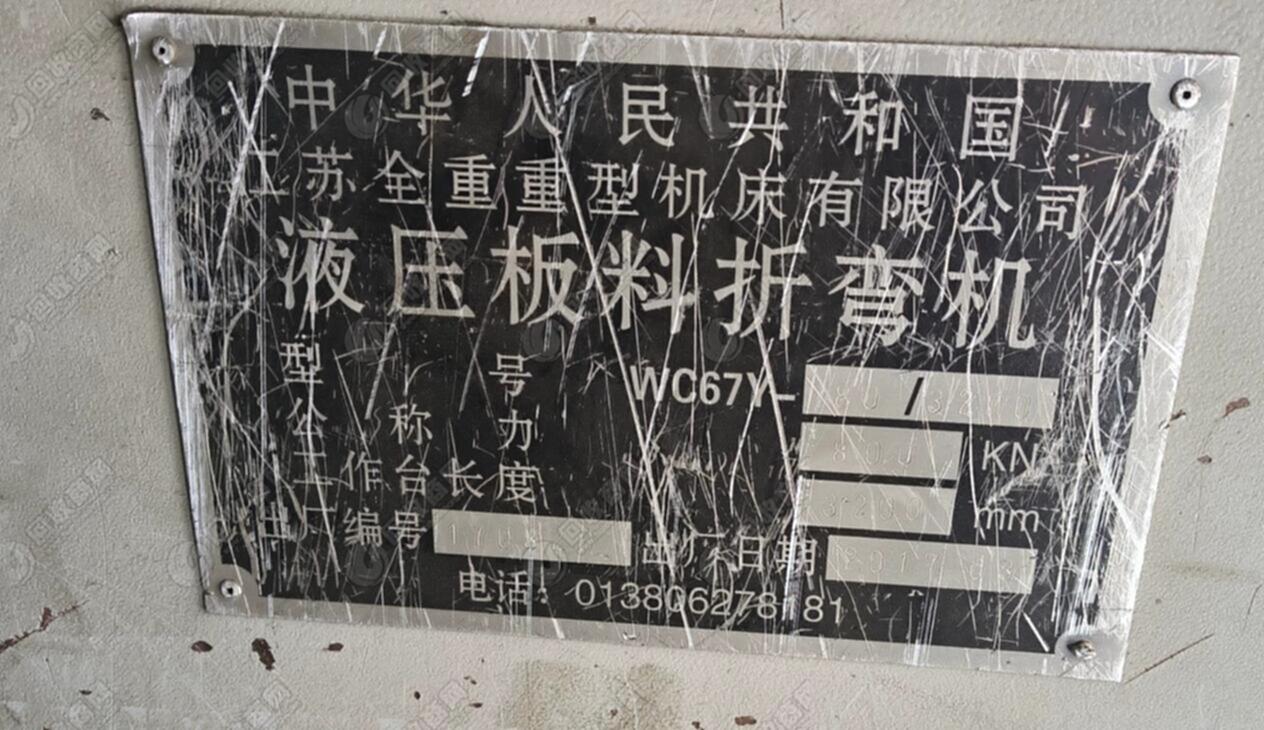 中华人民共和国
江苏全重重型机床有限公司
液压板料折弯机
型号 WC67Y-80/3200
公称力 800 KN
工作台长度 3200 mm
出厂编号 出厂日期
电话: 013806278181